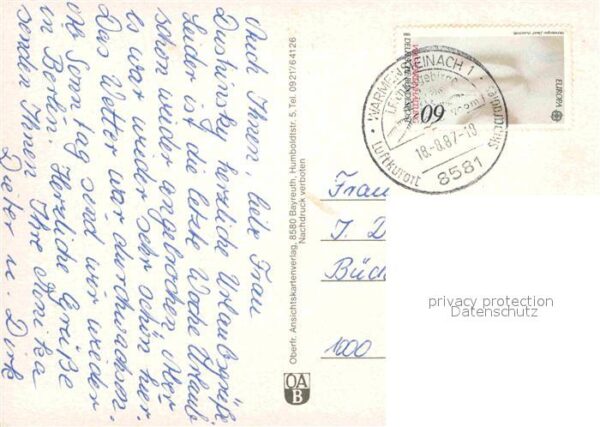 Auch Ihnen, liebe Frau
herzliche Urlaubsgrüße.
Leider ist die letzte Woche Urlaub
schon wieder angebrochen. Aber
es war wieder sehr schön hier.
Das Wetter war durchwachsen.
Ab Sonntag sind wir wieder
in Berlin. Herzliche Grüße
senden Ihnen Ihre Monika
Dieter u. Dirk
Oberfr. Ansichtskartenverlag, 8580 Bayreuth, Humboldtstr. 5, Tel. 0921/64126
Nachdruck verboten
OA
B
60
EUROPA
DEUTSCHE BUNDESPOST
WARMENSTEINACH 1
18.-8.87-18
Luftkurort
8581
Frau
I. D
1000
privacy protection
Datenschutz